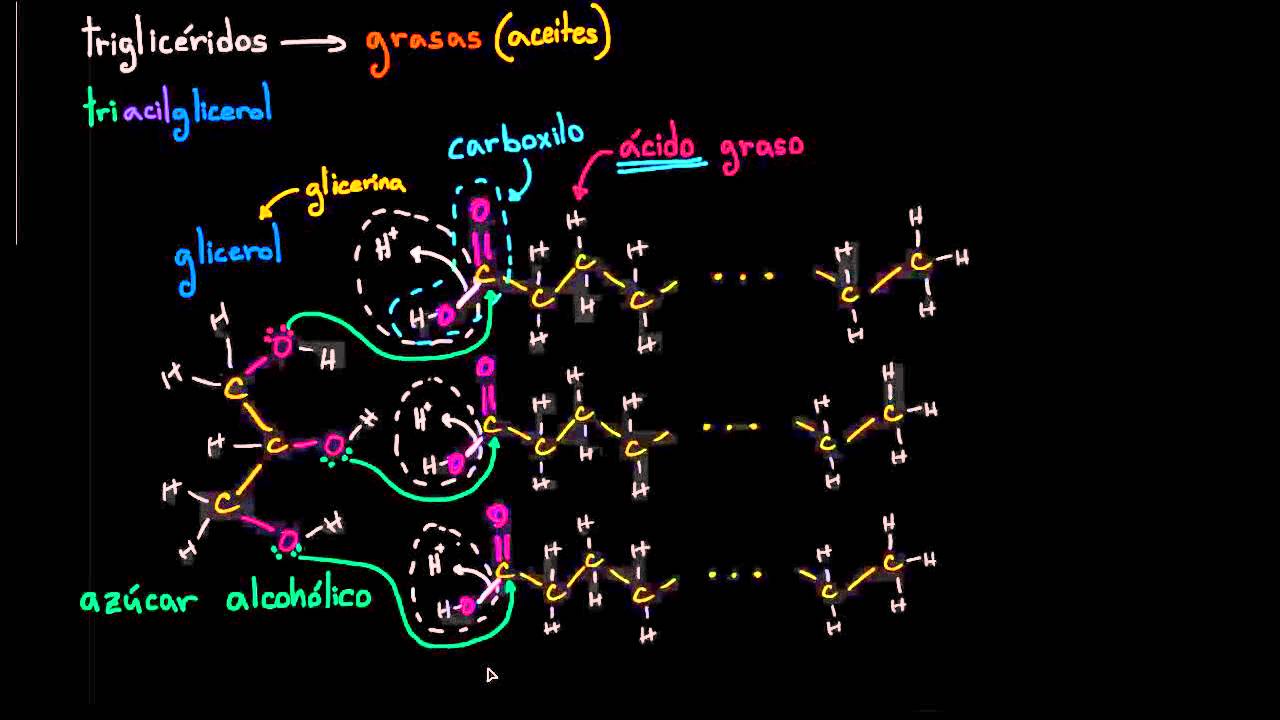 triglicéridos → grasas (aceites)
triacilglicerol
carboxilo
ácido graso
glicerina
glicerol
O H H
H⁺ H H H
C C C H
H O C C C C
H H H
H O H O
H C H⁺ H H H H
C C H
H C O H C C C
H O H H H
H C O H
H O H⁺ C H C H H C H
H O C C C
azúcar alcohólico H H H H H